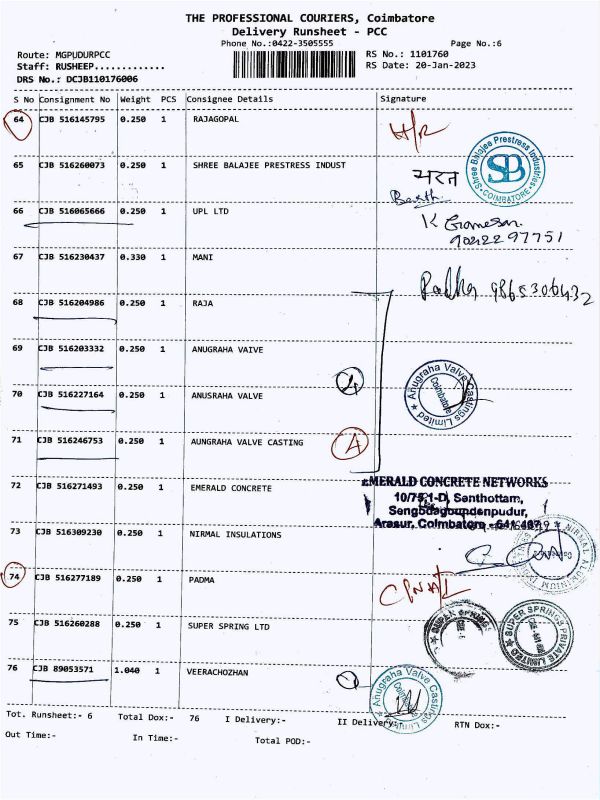 THE PROFESSIONAL COURIERS, Coimbatore
Delivery Runsheet - PCC
Phone No.:0422-3505555 Page No.:6
Route: MGPUDURPCC RS No.: 1101760
Staff: RUSHEEP............. RS Date: 20-Jan-2023
DRS No.: DCJB110176006
S No Consignment No Weight PCS Consignee Details Signature
64 CJB 516145795 0.250 1 RAJAGOPAL H/R
Shree Balajee Prestress Industries COIMBATORE SB
65 CJB 516260073 0.250 1 SHREE BALAJEE PRESTRESS INDUST भरत
66 CJB 516065666 0.250 1 UPL LTD K Ganesan.
9042297751
67 CJB 516230437 0.330 1 MANI Radha 9865306432
68 CJB 516204986 0.250 1 RAJA
69 CJB 516203332 0.250 1 ANUGRAHA VAIVE
70 CJB 516227164 0.250 1 ANUSRAHA VALVE
Anugraha Valve Castings Limited Coimbatore
71 CJB 516246753 0.250 1 AUNGRAHA VALVE CASTING
72 CJB 516271493 0.250 1 EMERALD CONCRETE EMERALD CONCRETE NETWORKS
10/75,1-D, Senthottam,
Sengodagoundenpudur,
Arasur, Coimbatore - 641 407
73 CJB 516309230 0.250 1 NIRMAL INSULATIONS
74 CJB 516277189 0.250 1 PADMA
75 CJB 516260288 0.250 1 SUPER SPRING LTD SUPER SPRINGS SUPER SPRINGS PRIVATE LIMITED
76 CJB 89053571 1.040 1 VEERACHOZHAN Anugraha Valve Castings Limited
Tot. Runsheet:- 6 Total Dox:- 76 I Delivery:- II Delivery:- RTN Dox:-
Out Time:- In Time:- Total POD:-